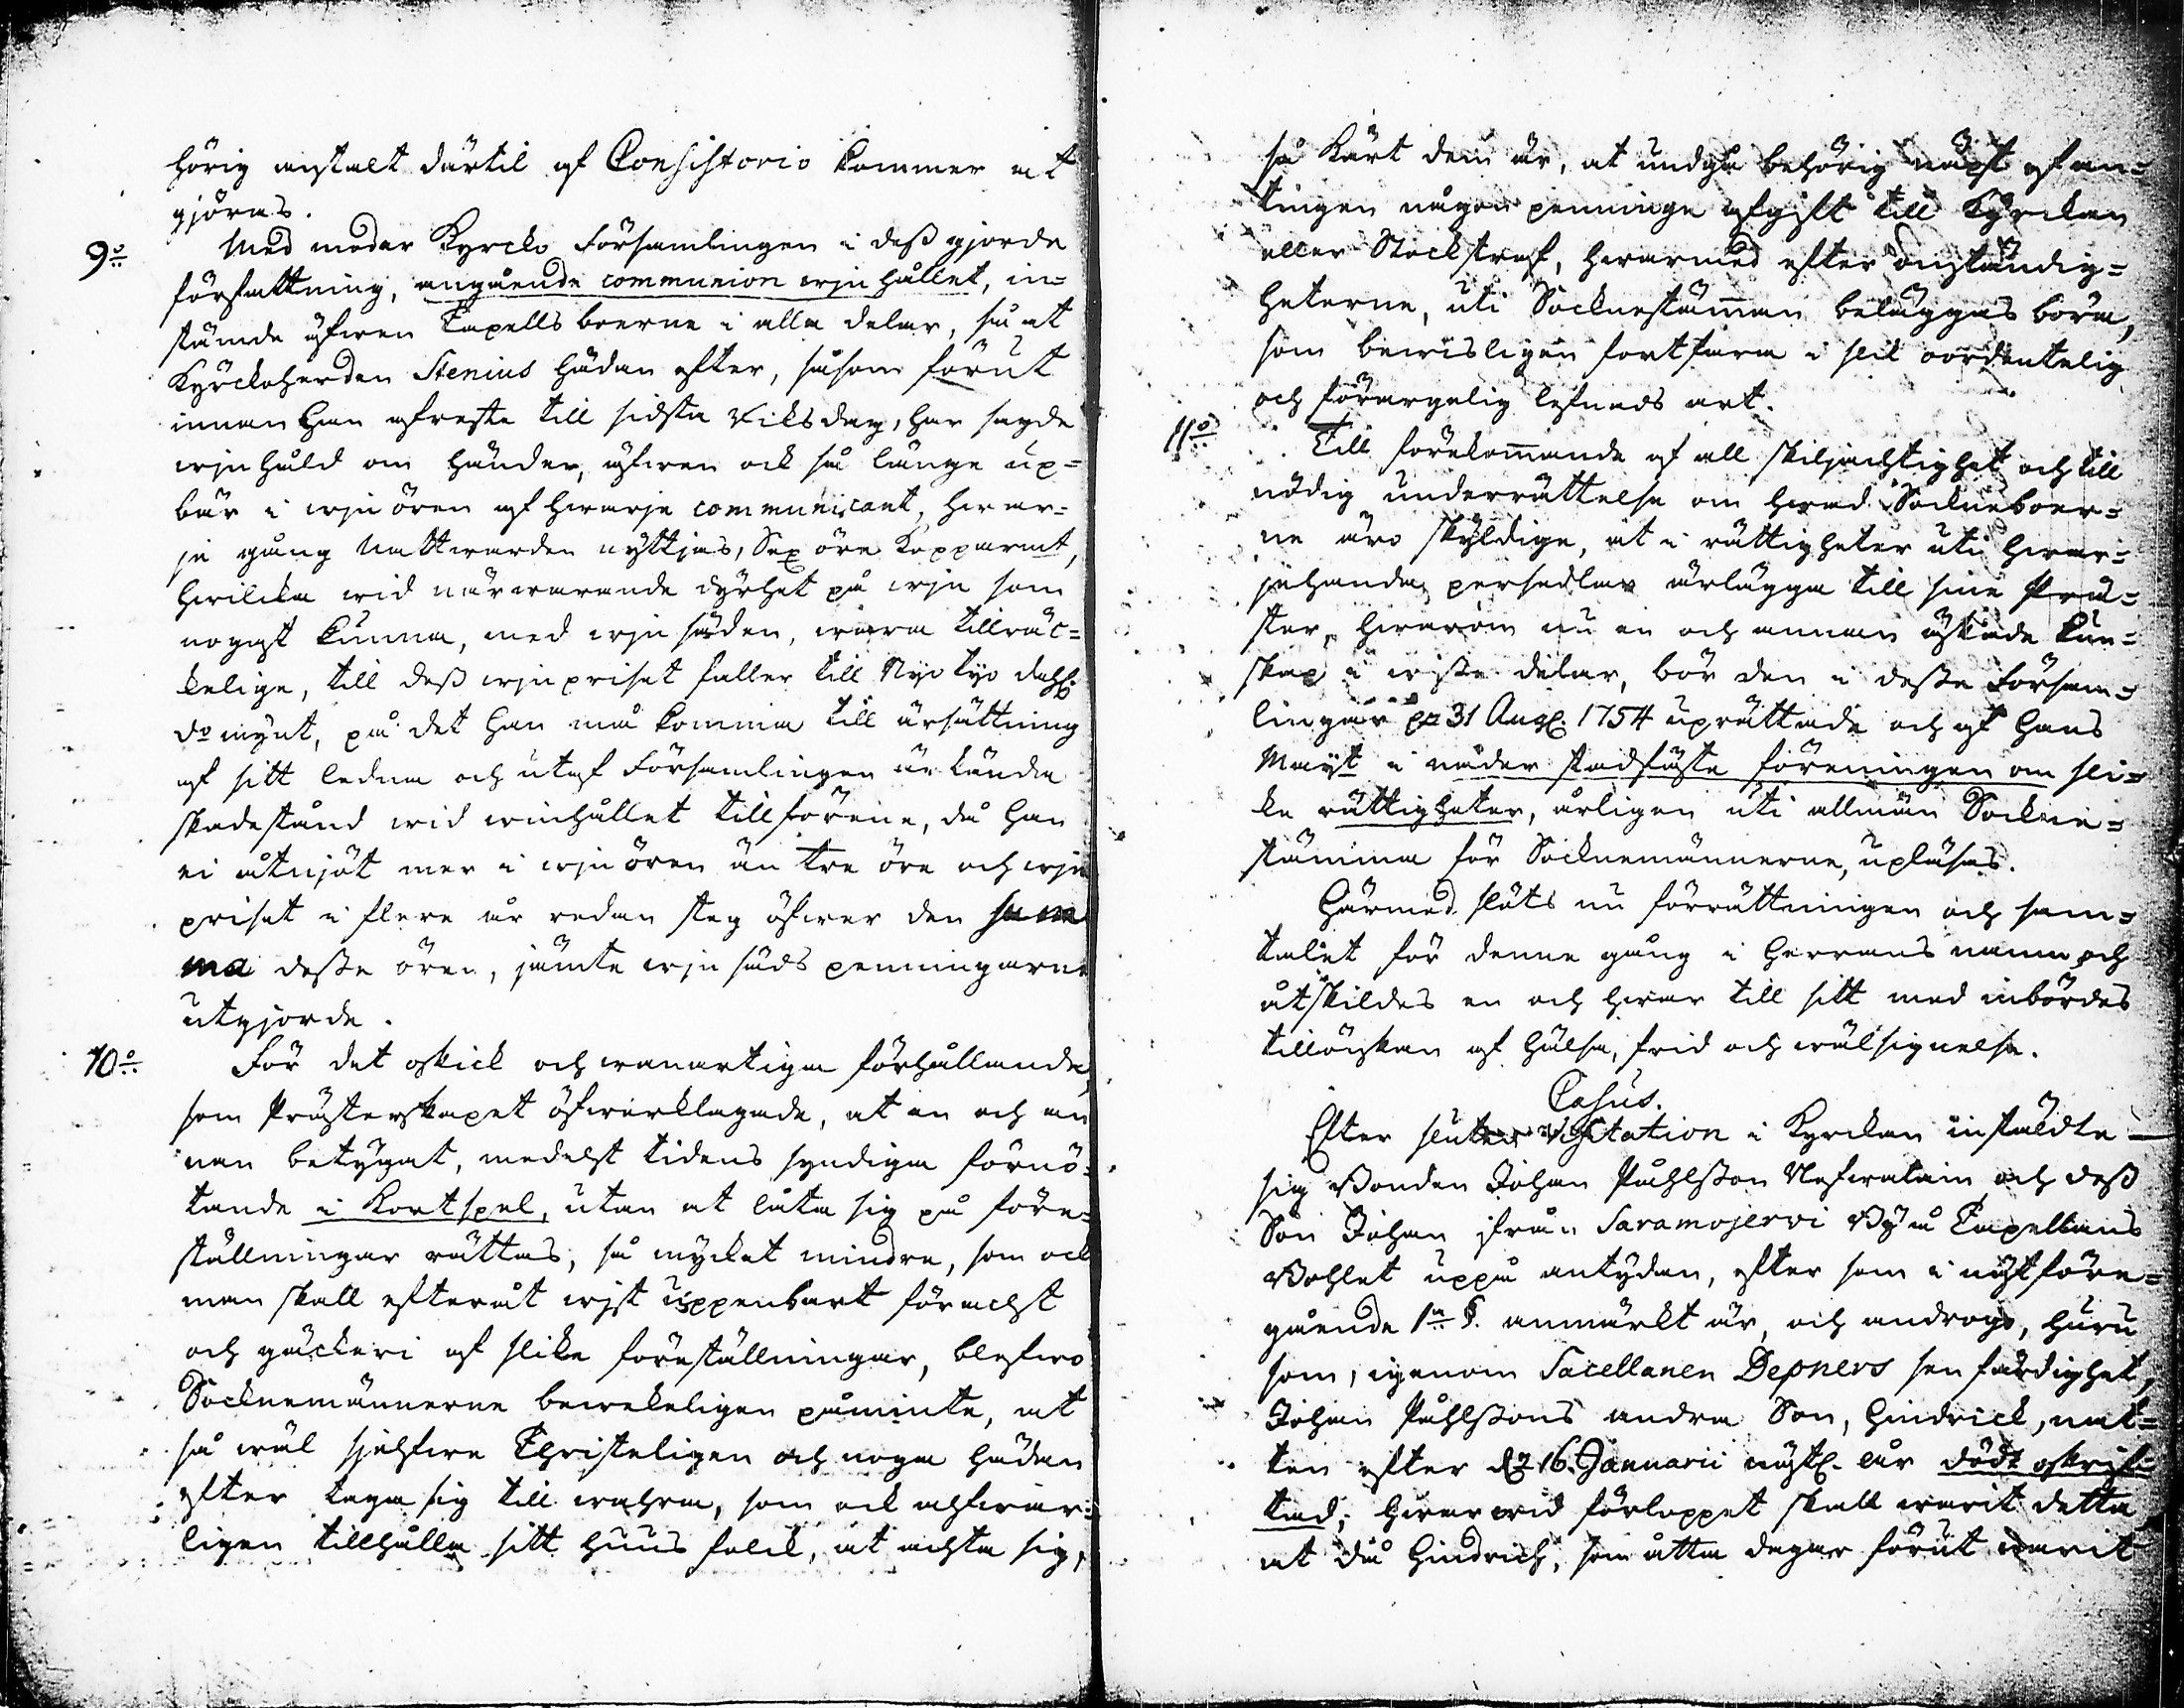 hörig anstalt därtil af Consistorio kommer at
giöras.
9:o Med moder Kyrcko Församlingen i dess giorde
författning, angående communion winhållet, in=
stämde äfwen Capells boerne i alla delar, så at
Kyrckoherden Stenius hädan efter, såsom förut
innan han afreste till sidsta Riksdag, har sagde
winhåld om händer, äfwen ock så länge up=
bär i winören af hwarje communicant, hwar=
je gång Nattwarden nyttjas, Sex öre Kopparmt,
hwilcka wid närwarande dyrhet på win som
nogast kunna, med winsäden, wara tillräc=
kelige, till dess winpriset faller till Nyo tijo dahl:
do mynt, på det han må komma till ersättning
af sitt ledna och utaf Församlingen ärkändа
skadestånd wid winhållet tillförene, då han
ei åtniöt mer i winören än tre öre och win
priset i flere år redan steg öfwer den sum
ma desse ören, jämte winsäds penningarne
utgiorde.
10:o För det oskick och wanartiga förhållande,
som Prästerskapet öfwerklagade, at en och an
nan betygat, medelst tidens syndiga förnö=
tande i Kortspel, utan at låta sig på före=
ställningar rättas, så mycket mindre, som ock
man skall efteråt wist uppenbart förachst
och gäckeri af slika föreställningar, blefwo
Socknemännerne bewekeligen påminte, at
så wäl sjelfwe Christeligen och noga hädan
efter taga sig till wahra, som ock alfwar=
ligen tillhålla sitt huus folck, at achta sig,
så kärt dem är, at undgå behörig näpst af an=
tingen någon penninge afgift till Kyrckan
eller Stockstraf, hwarmed efter omständig=
heterne, uti Socknestämman beläggas böra,
som bewisligen fortfara i slik oordentelig
och förargelig lefnads art.
11:o Till förekommande af all skiljachtighet och till
nödig underrättelse om hwad Sockneboer=
ne äro skyldige, at i rättigheter uti hwar=
jehanda persedlar ärlägga till sine Prä=
ster, hwarom nu en och annan äskade kun=
skap i wisse delar, bör den i desse Försam=
lingar d. 31 Aug. 1754 uprättade och af Hans
Mayt i nåder stadfäste föreningen om sli=
ke rättigheter, årligen uti allmän Sockne=
stämma för Socknemännerne, upläsas.
Härmed slöts nu förrättningen och sam=
talet för denne gång i Herrans namn och
åtskildes en och hwar till sitt med inbördes
tillönskan af hälsa, frid och wälsignelse.
Casus.
Efter slutes Visitation i Kyrckan instäldte
sig Bonden Johan Påhlsson Nefwalain och dess
Son Johan ifrån Saramojerwi By å Capellans
Bohlet uppå antydan, efter som i näst före=
gående 1:a §. anmärkt är, och androgo, huru
som, igenom Sacellanen Depners senfärdighet,
Johan Påhlssons andra Son, Hindrick, nat=
ten efter d. 16. Januarii nästl. år dödt oskrif=
tad; hwarwid förloppet skall warit detta
at då Hindrich, som åtta dagar förut warit